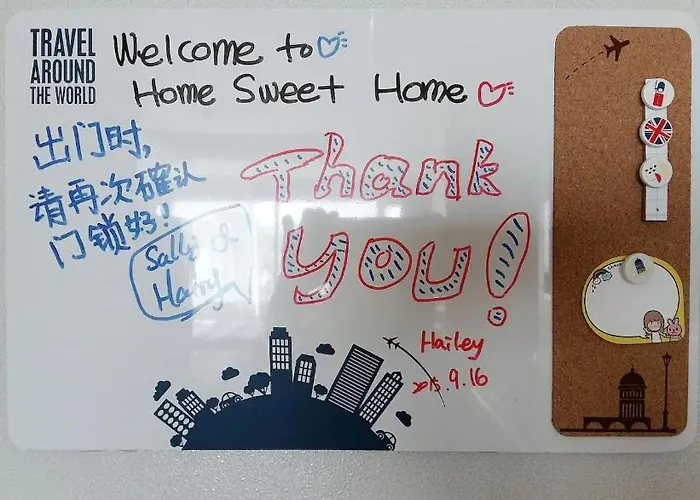 TRAVEL
AROUND
THE WORLD
Welcome to
Home Sweet Home
出门时,
请再次確认
门锁好!
Sally &
Harry
Thank
you!
Hailey
2015.9.16